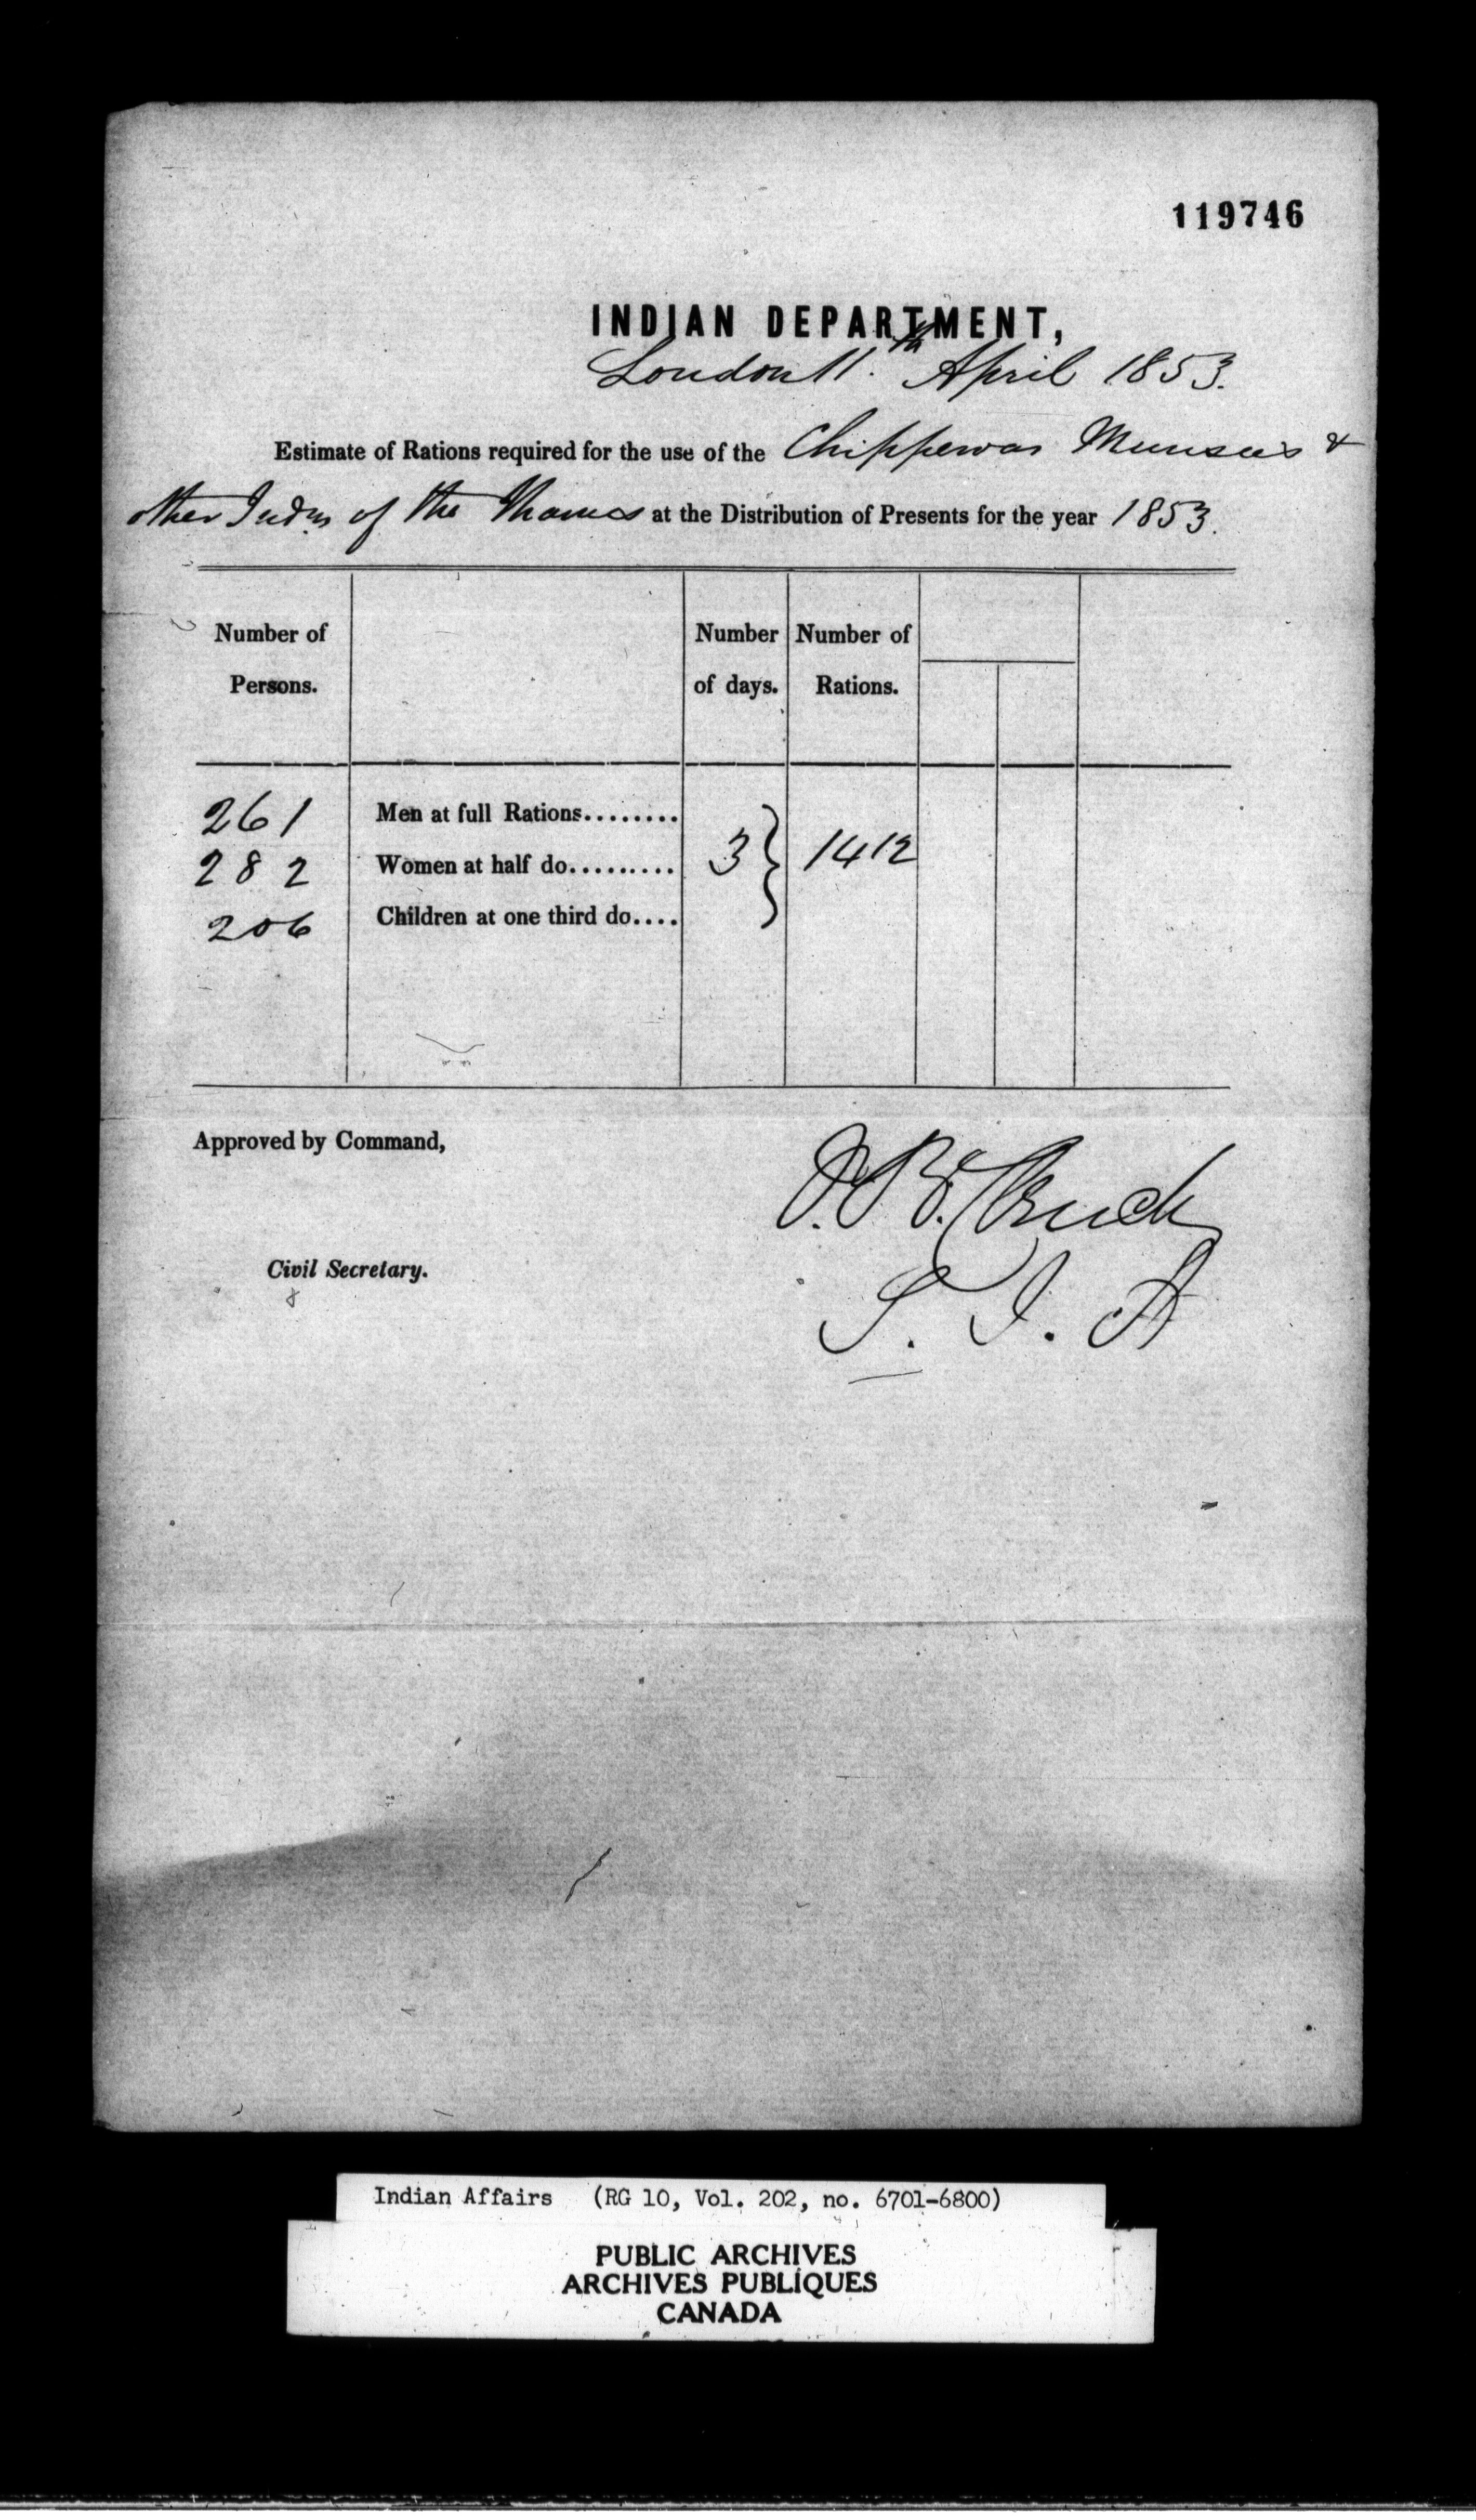 119746
INDIAN DEPARTMENT,
London 11.th April 1853.
Estimate of Rations required for the use of the Chippewas Munsees &
other Indns of the Thames at the Distribution of Presents for the year 1853.
Number of Persons. Number of days. Number of Rations.
261 Men at full Rations........
282 Women at half do......... 3 } 1412
206 Children at one third do....
Approved by Command,
Civil Secretary.
S. I. A
Indian Affairs (RG 10, Vol. 202, no. 6701-6800)
PUBLIC ARCHIVES
ARCHIVES PUBLIQUES
CANADA